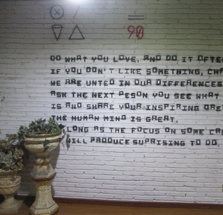 90
DO WHAT YOU LOVE, AND DO IT OFTEN
IF YOU DON'T LIKE SOMETHING,
WE ARE UNTED IN OUR DIFFERENCES
ASK THE NEXT PESON YOU SEE WHAT
IS AND SHARE YOUR INSPIRING
THE HUMAN MIND IS GREAT,
LONG AS THE FOCUS ON SOME
WILL PRODUCE SUPRISING TO DO.